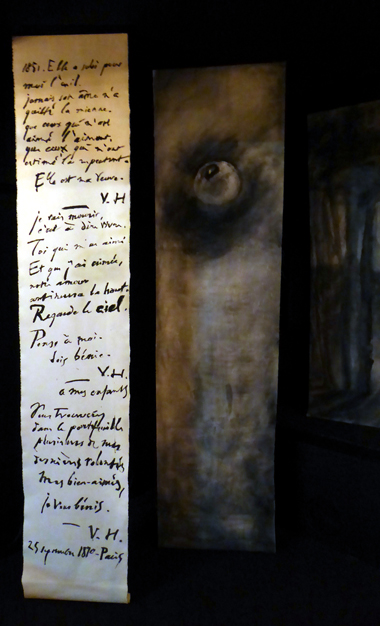 1851. Elle a subi pour
moi l'exil.
jamais son âme n'a
quitté la mienne.
que ceux qui m'ont
aimé l'aiment.
que ceux qui m'ont
estimé la respectent.
Elle est ma veuve.
V. H
Je vais mourir,
c'est à dire vivre.
Toi qui m'as aimé
Et que j'ai aimée,
notre amour
continuera là-haut.
Regarde le ciel.
Pense à moi.
Sois bénie.
V. H.
à mes enfants
Vous trouverez
dans le portefeuille
plusieurs de mes
dernières volontés
Mes bien-aimés,
je vous bénis.
V. H.
25 septembre 1870 - Paris